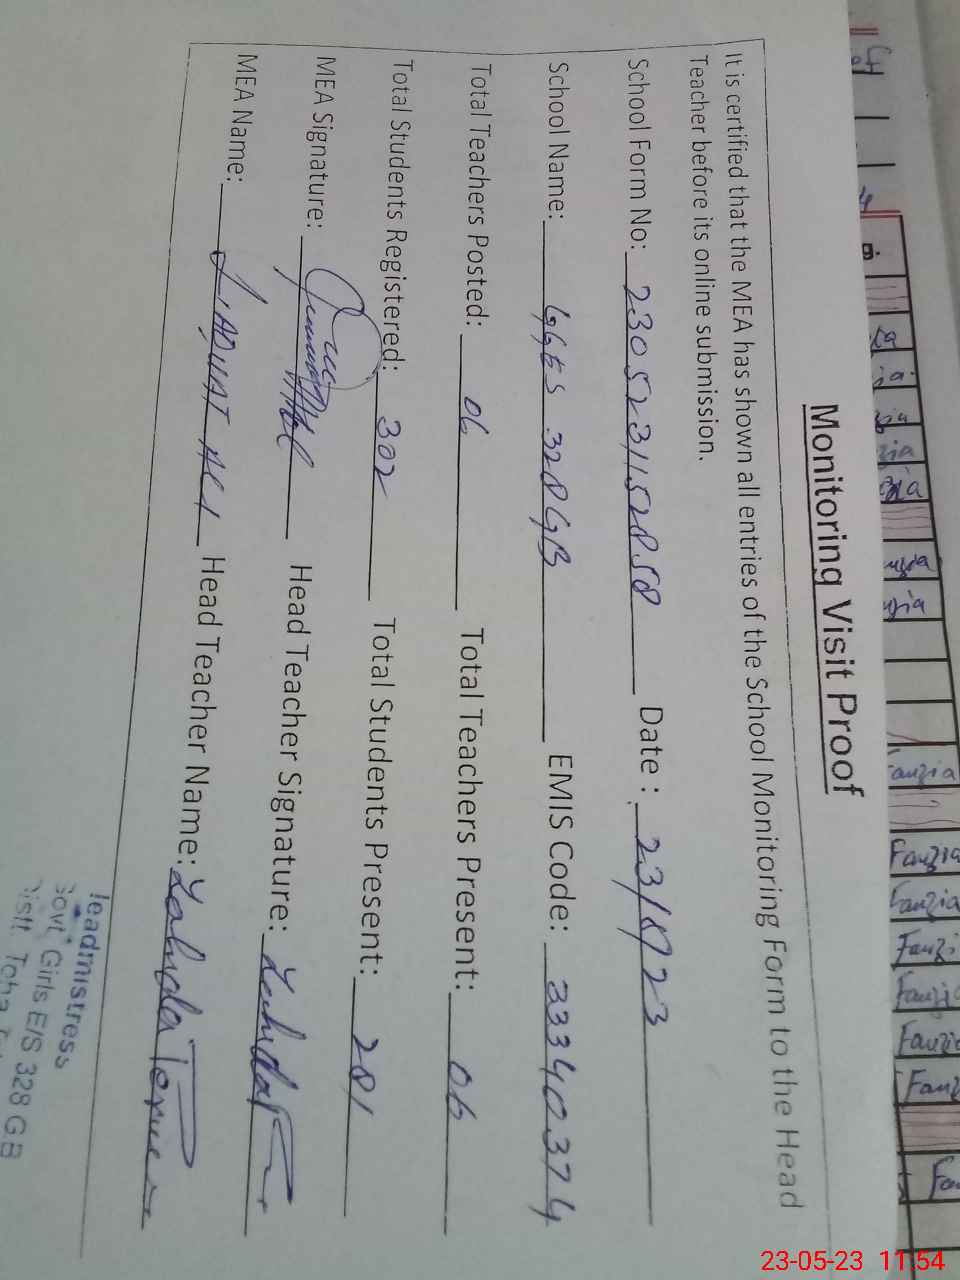 Monitoring Visit Proof
It is certified that the MEA has shown all entries of the School Monitoring Form to the Head
Teacher before its online submission.
School Form No: Date: 23/5/23
School Name: GGES 328 GB EMIS Code: 33340374
Total Teachers Posted: 06 Total Teachers Present: 06
Total Students Registered: 302 Total Students Present: 281
MEA Signature: Head Teacher Signature:
MEA Name: LIAQUAT ALI Head Teacher Name:
Headmistress
Govt Girls E/S 328 GB
Distt. Toba
Fauzia
Fauzia
Fauzia
Fauzi
Fauzia
Fauzia
Fauz
Fa
23-05-23 11:54